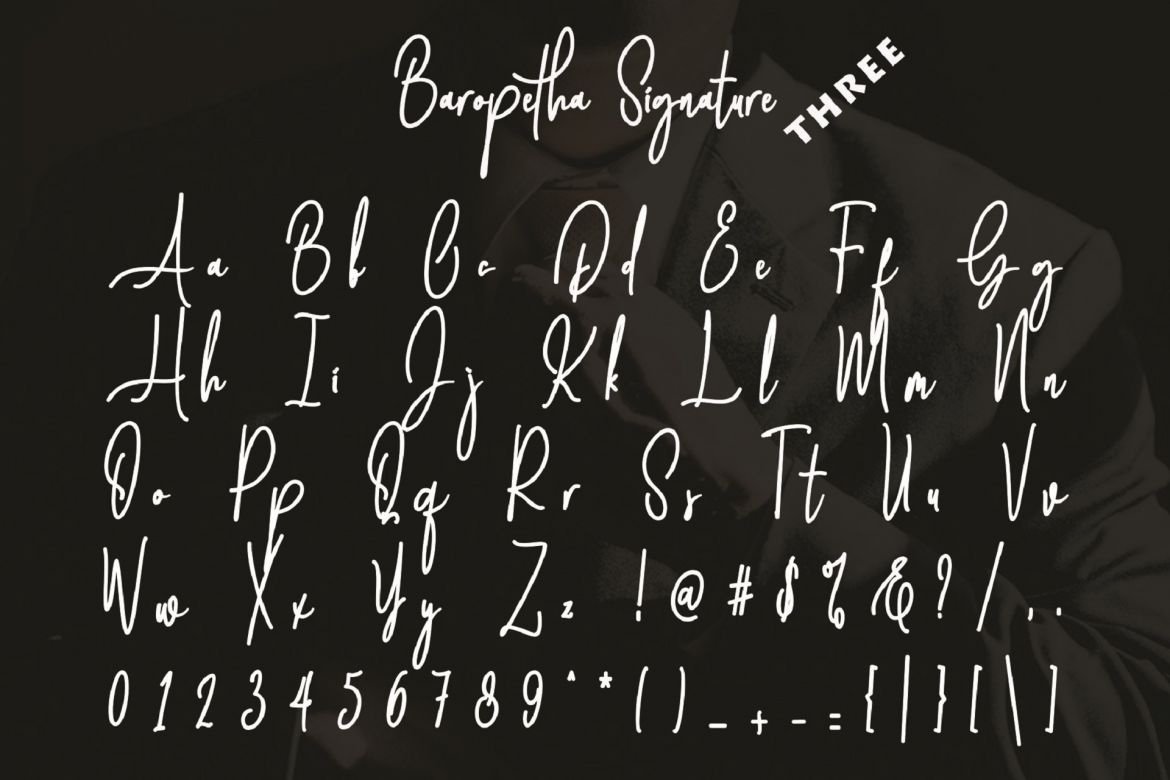 Baropetha Signature THREE
Aa Bb Cc Dd Ee Ff Gg
Hh Ii Jj Kk Ll Mm Nn
Oo Pp Qq Rr Ss Tt Uu Vv
Ww Xx Yy Zz ! @ # $ % & ? / , .
0 1 2 3 4 5 6 7 8 9 ^ * ( ) _ + - = { | } [ \ ]